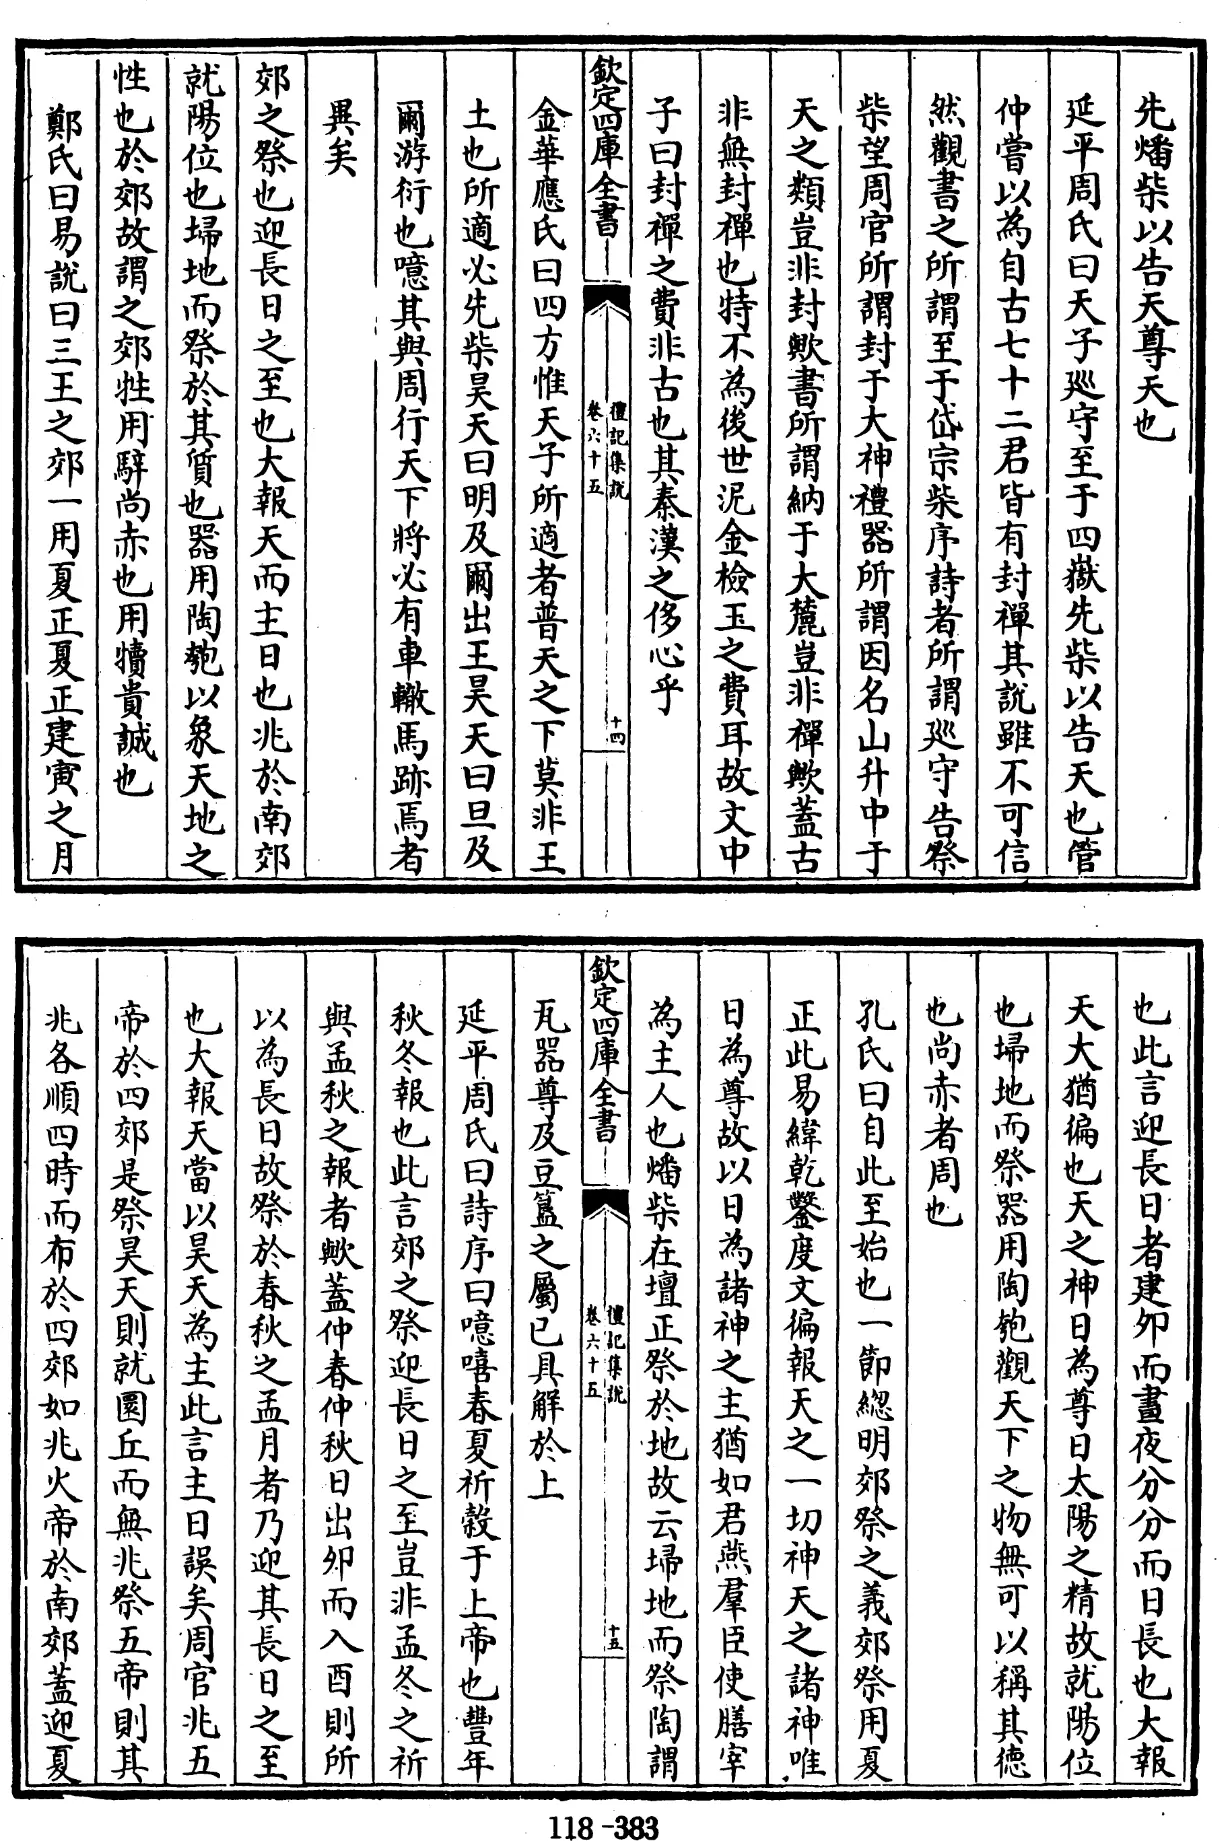 先燔柴以告天尊天也
延平周氏曰天子廵守至于四嶽先柴以告天也管
仲嘗以為自古七十二君皆有封禪其說雖不可信
然觀書之所謂至于岱宗柴序詩者所謂廵守告祭
柴望周官所謂封于大神禮器所謂因名山升中于
天之類豈非封歟書所謂納于大麓豈非禪歟蓋古
非無封禪也特不為後世泥金檢玉之費耳故文中
子曰封禪之費非古也其秦漢之侈心乎
欽定四庫全書
禮記集說
卷六十五
十四
金華應氏曰四方惟天子所適者普天之下莫非王
土也所適必先柴昊天曰明及爾出王昊天曰旦及
爾游衍也噫其與周行天下將必有車轍馬跡焉者
異矣
郊之祭也迎長日之至也大報天而主日也兆於南郊
就陽位也埽地而祭於其質也器用陶匏以象天地之
性也於郊故謂之郊牲用騂尚赤也用犢貴誠也
鄭氏曰易說曰三王之郊一用夏正夏正建寅之月
也此言迎長日者建卯而晝夜分分而日長也大報
天大猶徧也天之神日為尊日太陽之精故就陽位
也埽地而祭器用陶匏觀天下之物無可以稱其德
也尚赤者周也
孔氏曰自此至始也一節緫明郊祭之義郊祭用夏
正此易緯乾鑿度文徧報天之一切神天之諸神唯
日為尊故以日為諸神之主猶如君燕羣臣使膳宰
為主人也燔柴在壇正祭於地故云埽地而祭陶謂
欽定四庫全書
禮記集說
卷六十五
十五
瓦器尊及豆簋之屬已具解於上
延平周氏曰詩序曰噫嘻春夏祈穀于上帝也豐年
秋冬報也此言郊之祭迎長日之至豈非孟冬之祈
與孟秋之報者歟蓋仲春仲秋日出卯而入酉則所
以為長日故祭於春秋之孟月者乃迎其長日之至
也大報天當以昊天為主此言主日誤矣周官兆五
帝於四郊是祭昊天則就圜丘而無兆祭五帝則其
兆各順四時而布於四郊如兆火帝於南郊蓋迎夏
118-383